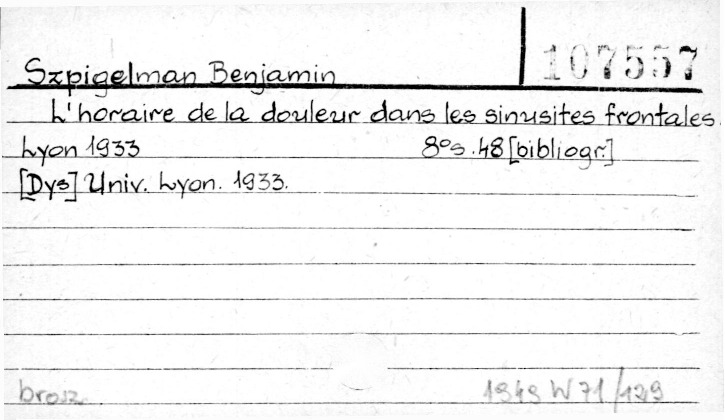 107557
Szpigelman Benjamin
L'horaire de la douleur dans les sinusites frontales.
Lyon 1933 8° s. 48 [bibliogr.]
[Dys] Univ. Lyon. 1933.
brosz. 1949 W 71/129